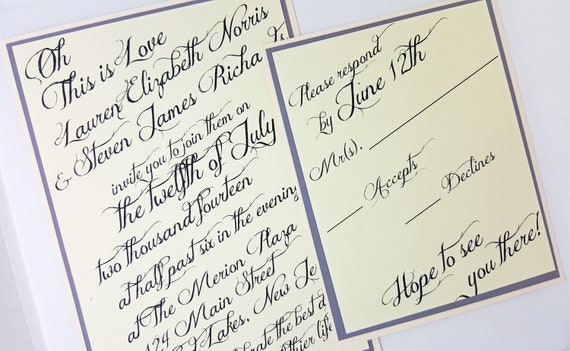 Oh
This is Love
Lauren Elizabeth Norris
& Steven James Richa
invite you to join them on
the twelfth of July
two thousand fourteen
at half past six in the evening
at The Merion Plaza
124 Main Street
Lakes, New Je
rate the best d
thier life
Please respond
by June 12th
Mr(s).
Accepts
Declines
Hope to see
you there!